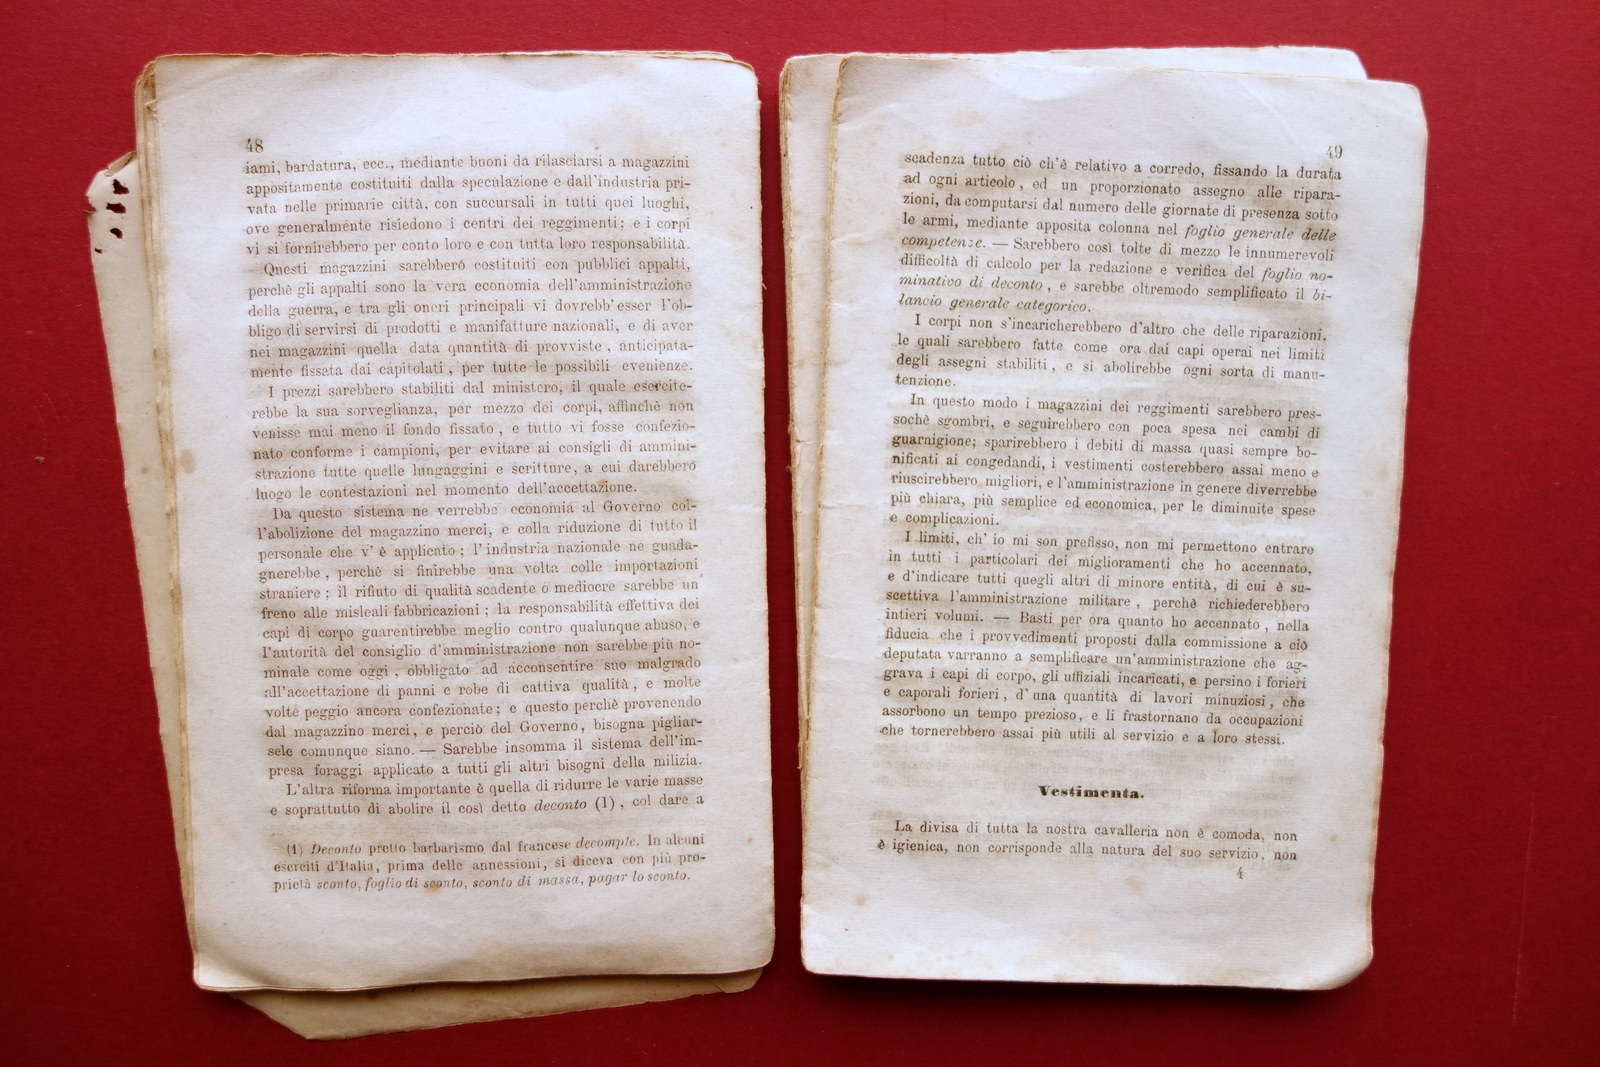 48
iami, bardatura, ecc., mediante buoni da rilasciarsi a magazzini
appositamente costituiti dalla speculazione e dall'industria pri-
vata nelle primarie città, con succursali in tutti quei luoghi,
ove generalmente risiedono i centri dei reggimenti; e i corpi
vi si fornirebbero per conto loro e con tutta loro responsabilità.
Questi magazzini sarebbero costituiti con pubblici appalti,
perchè gli appalti sono la vera economia dell'amministrazione
della guerra, e tra gli oneri principali vi dovrebb'esser l'ob-
bligo di servirsi di prodotti e manifatture nazionali, e di aver
nei magazzini quella data quantità di provviste, anticipata-
mente fissata dai capitolati, per tutte le possibili evenienze.
I prezzi sarebbero stabiliti dal ministero, il quale esercite-
rebbe la sua sorveglianza, per mezzo dei corpi, affinchè non
venisse mai meno il fondo fissato, e tutto vi fosse confezio-
nato conforme i campioni, per evitare ai consigli di ammini-
strazione tutte quelle lungaggini e scritture, a cui darebbero
luogo le contestazioni nel momento dell'accettazione.
Da questo sistema ne verrebbe economia al Governo col-
l'abolizione del magazzino merci, e colla riduzione di tutto il
personale che v' è applicato; l'industria nazionale ne guada-
gnerebbe, perchè si finirebbe una volta colle importazioni
straniere; il rifiuto di qualità scadente o mediocre sarebbe un
freno alle misleali fabbricazioni; la responsabilità effettiva dei
capi di corpo guarentirebbe meglio contro qualunque abuso, e
l'autorità del consiglio d'amministrazione non sarebbe più no-
minale come oggi, obbligato ad acconsentire suo malgrado
all'accettazione di panni e robe di cattiva qualità, e molte
volte peggio ancora confezionate; e questo perchè provenendo
dal magazzino merci, e perciò del Governo, bisogna pigliar-
sele comunque siano. — Sarebbe insomma il sistema dell'im-
presa foraggi applicato a tutti gli altri bisogni della milizia.
L'altra riforma importante è quella di ridurre le varie masse
e soprattutto di abolire il così detto deconto (1), col dare a
(1) Deconto pretto barbarismo dal francese decompte. In alcuni
eserciti d'Italia, prima delle annessioni, si diceva con più pro-
prietà sconto, foglio di sconto, sconto di massa, pagar lo sconto.
49
scadenza tutto ciò ch'è relativo a corredo, fissando la durata
ad ogni articolo, ed un proporzionato assegno alle ripara-
zioni, da computarsi dal numero delle giornate di presenza sotto
le armi, mediante apposita colonna nel foglio generale delle
competenze. — Sarebbero così tolte di mezzo le innumerevoli
difficoltà di calcolo per la redazione e verifica del foglio no-
minativo di deconto, e sarebbe oltremodo semplificato il bi-
lancio generale categorico.
I corpi non s'incaricherebbero d'altro che delle riparazioni,
le quali sarebbero fatte come ora dai capi operai nei limiti
degli assegni stabiliti, e si abolirebbe ogni sorta di manu-
tenzione.
In questo modo i magazzini dei reggimenti sarebbero pres-
sochè sgombri, e seguirebbero con poca spesa nei cambi di
guarnigione; sparirebbero i debiti di massa quasi sempre bo-
nificati ai congedandi, i vestimenti costerebbero assai meno e
riuscirebbero migliori, e l'amministrazione in genere diverrebbe
più chiara, più semplice ed economica, per le diminuite spese
e complicazioni.
I limiti, ch' io mi son prefisso, non mi permettono entrare
in tutti i particolari dei miglioramenti che ho accennato,
e d'indicare tutti quegli altri di minore entità, di cui è su-
scettiva l'amministrazione militare, perchè richiederebbero
intieri volumi. — Basti per ora quanto ho accennato, nella
fiducia che i provvedimenti proposti dalla commissione a ciò
deputata varranno a semplificare un'amministrazione che ag-
grava i capi di corpo, gli uffiziali incaricati, e persino i forieri
e caporali forieri, d' una quantità di lavori minuziosi, che
assorbono un tempo prezioso, e li frastornano da occupazioni
che tornerebbero assai più utili al servizio e a loro stessi.
Vestimenta.
La divisa di tutta la nostra cavalleria non è comoda, non
è igienica, non corrisponde alla natura del suo servizio, non
4